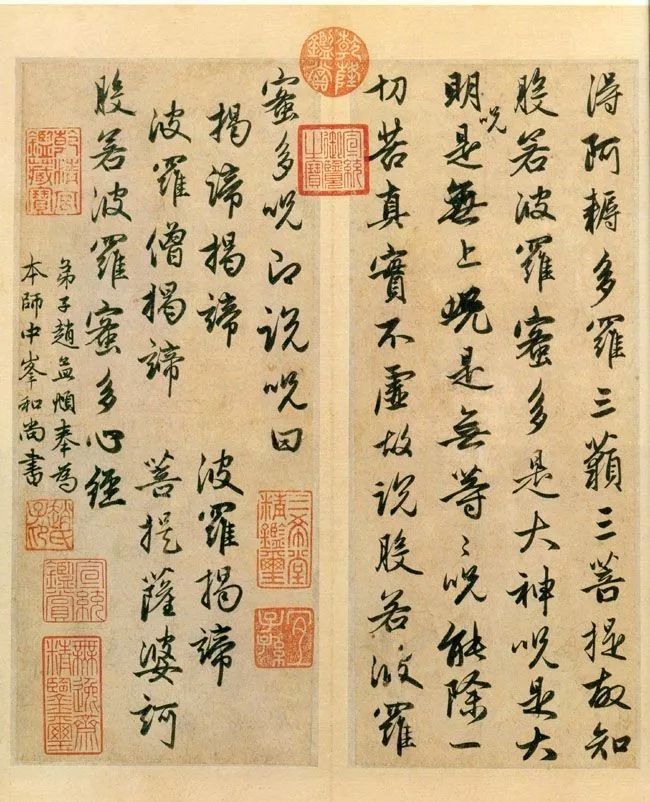 得阿耨多羅三藐三菩提故知
般若波羅蜜多是大神呪是大
明呪是無上呪是無等〻呪能除一
切苦真實不虛故說般若波羅
蜜多呪即說呪曰
揭諦揭諦 波羅揭諦
波羅僧揭諦 菩提薩婆訶
般若波羅蜜多心經
弟子趙孟頫奉為
本師中峯和尚書
乾隆鑑賞
宣統御覽之寶
乾清宮鑑藏寶
三希堂精鑑璽
宜子孫
趙氏子昂
宣統鑑賞
無逸齋精鑑璽